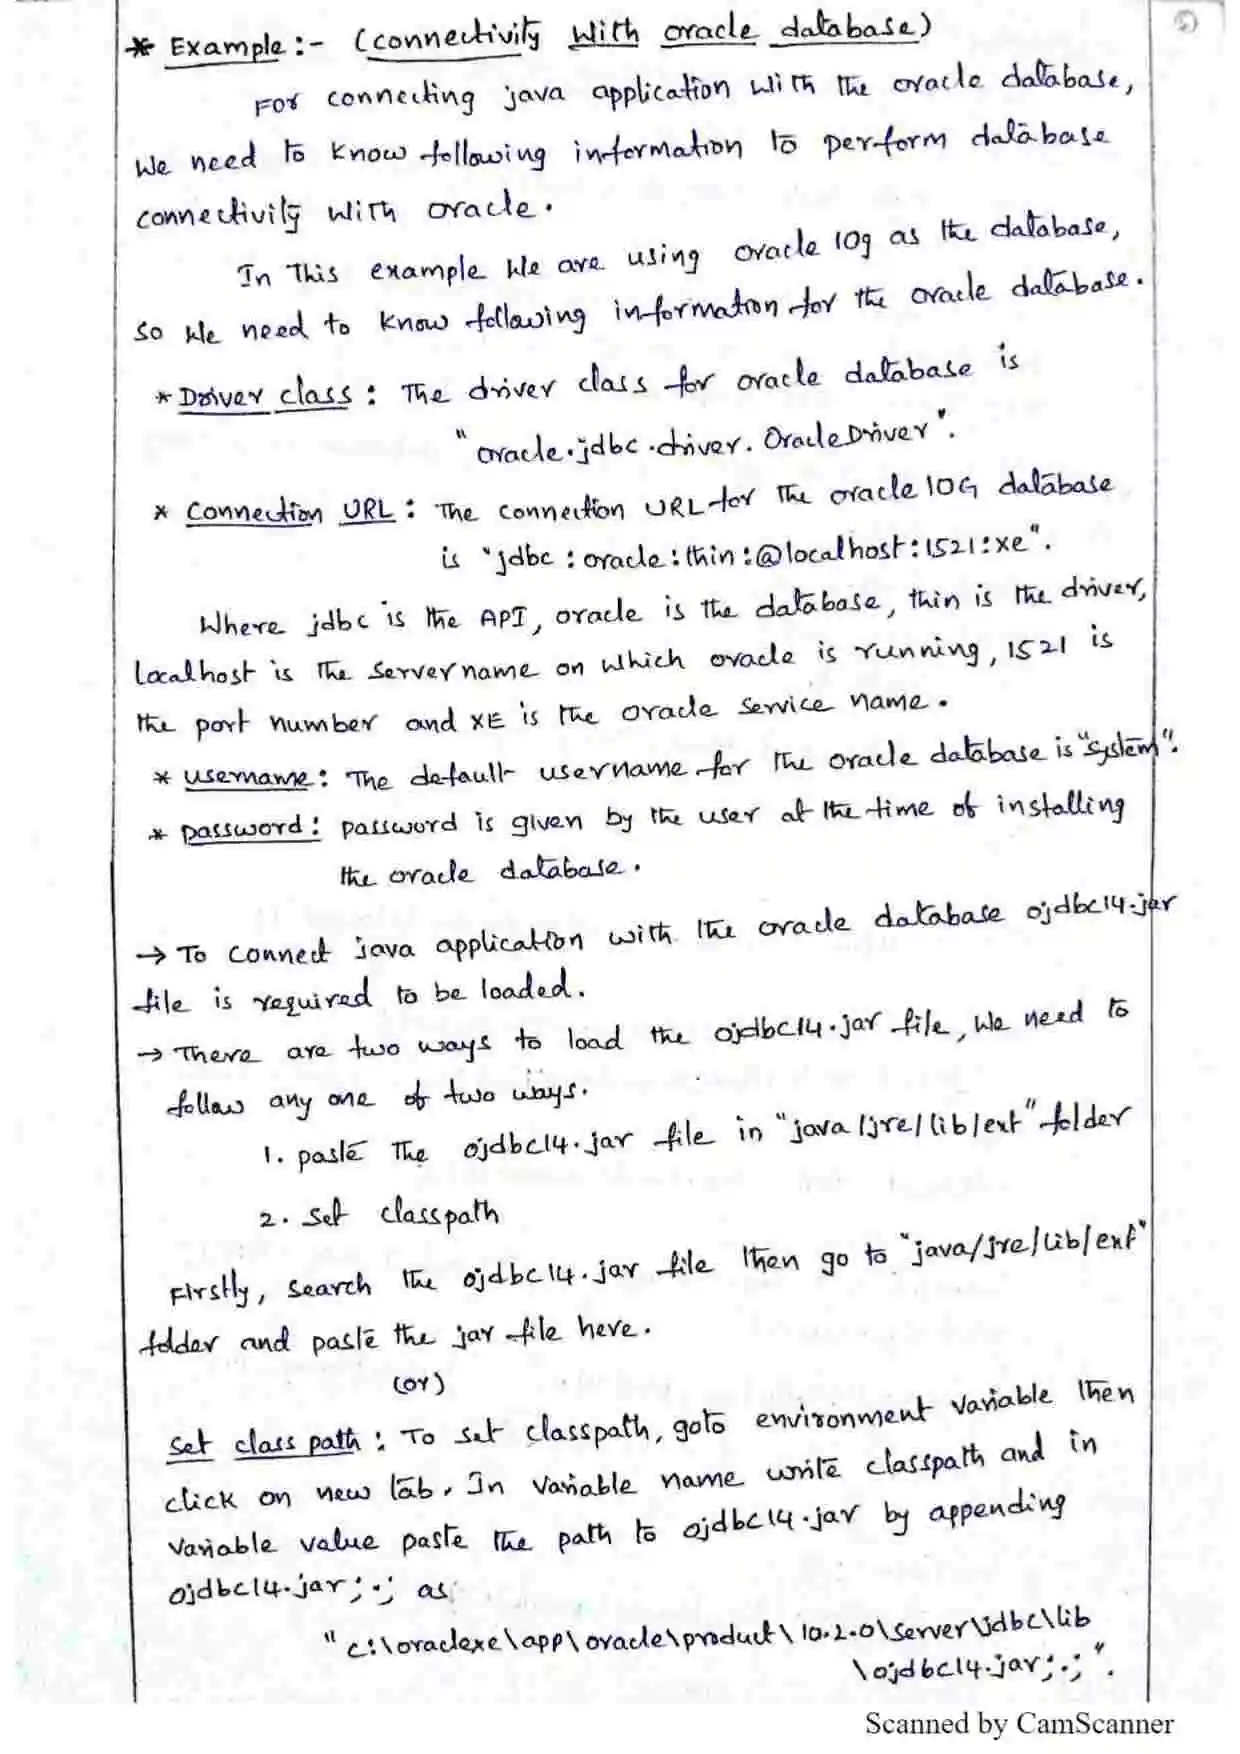 5
* Example :- (connectivity with oracle database)
For connecting java application with the oracle database,
we need to know following information to perform database
connectivity with oracle.
In This example we are using oracle 10g as the database,
so we need to know following information for the oracle database.
* Driver class : The driver class for oracle database is
"oracle.jdbc.driver.OracleDriver".
* Connection URL : The connection URL for the oracle 10G database
is "jdbc:oracle:thin:@localhost:1521:xe".
Where jdbc is the API, oracle is the database, thin is the driver,
localhost is the server name on which oracle is running, 1521 is
the port number and XE is the oracle service name.
* username : The default username for the oracle database is "system".
* password : password is given by the user at the time of installing
the oracle database.
→ To connect java application with the oracle database ojdbc14.jar
file is required to be loaded.
→ There are two ways to load the ojdbc14.jar file, we need to
follow any one of two ways.
1. paste the ojdbc14.jar file in "java/jre/lib/ext" folder
2. set classpath
Firstly, search the ojdbc14.jar file then go to "java/jre/lib/ext"
folder and paste the jar file here.
(or)
set class path : To set classpath, goto environment variable then
click on new tab. In variable name write classpath and in
variable value paste the path to ojdbc14.jar by appending
ojdbc14.jar;.; as
"c:\oraclexe\app\oracle\product\10.2.0\server\jdbc\lib
\ojdbc14.jar;.;".
Scanned by CamScanner